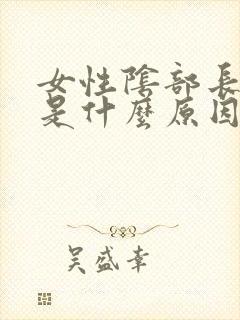 女性陰部長
是什麼原因
吴盛幸